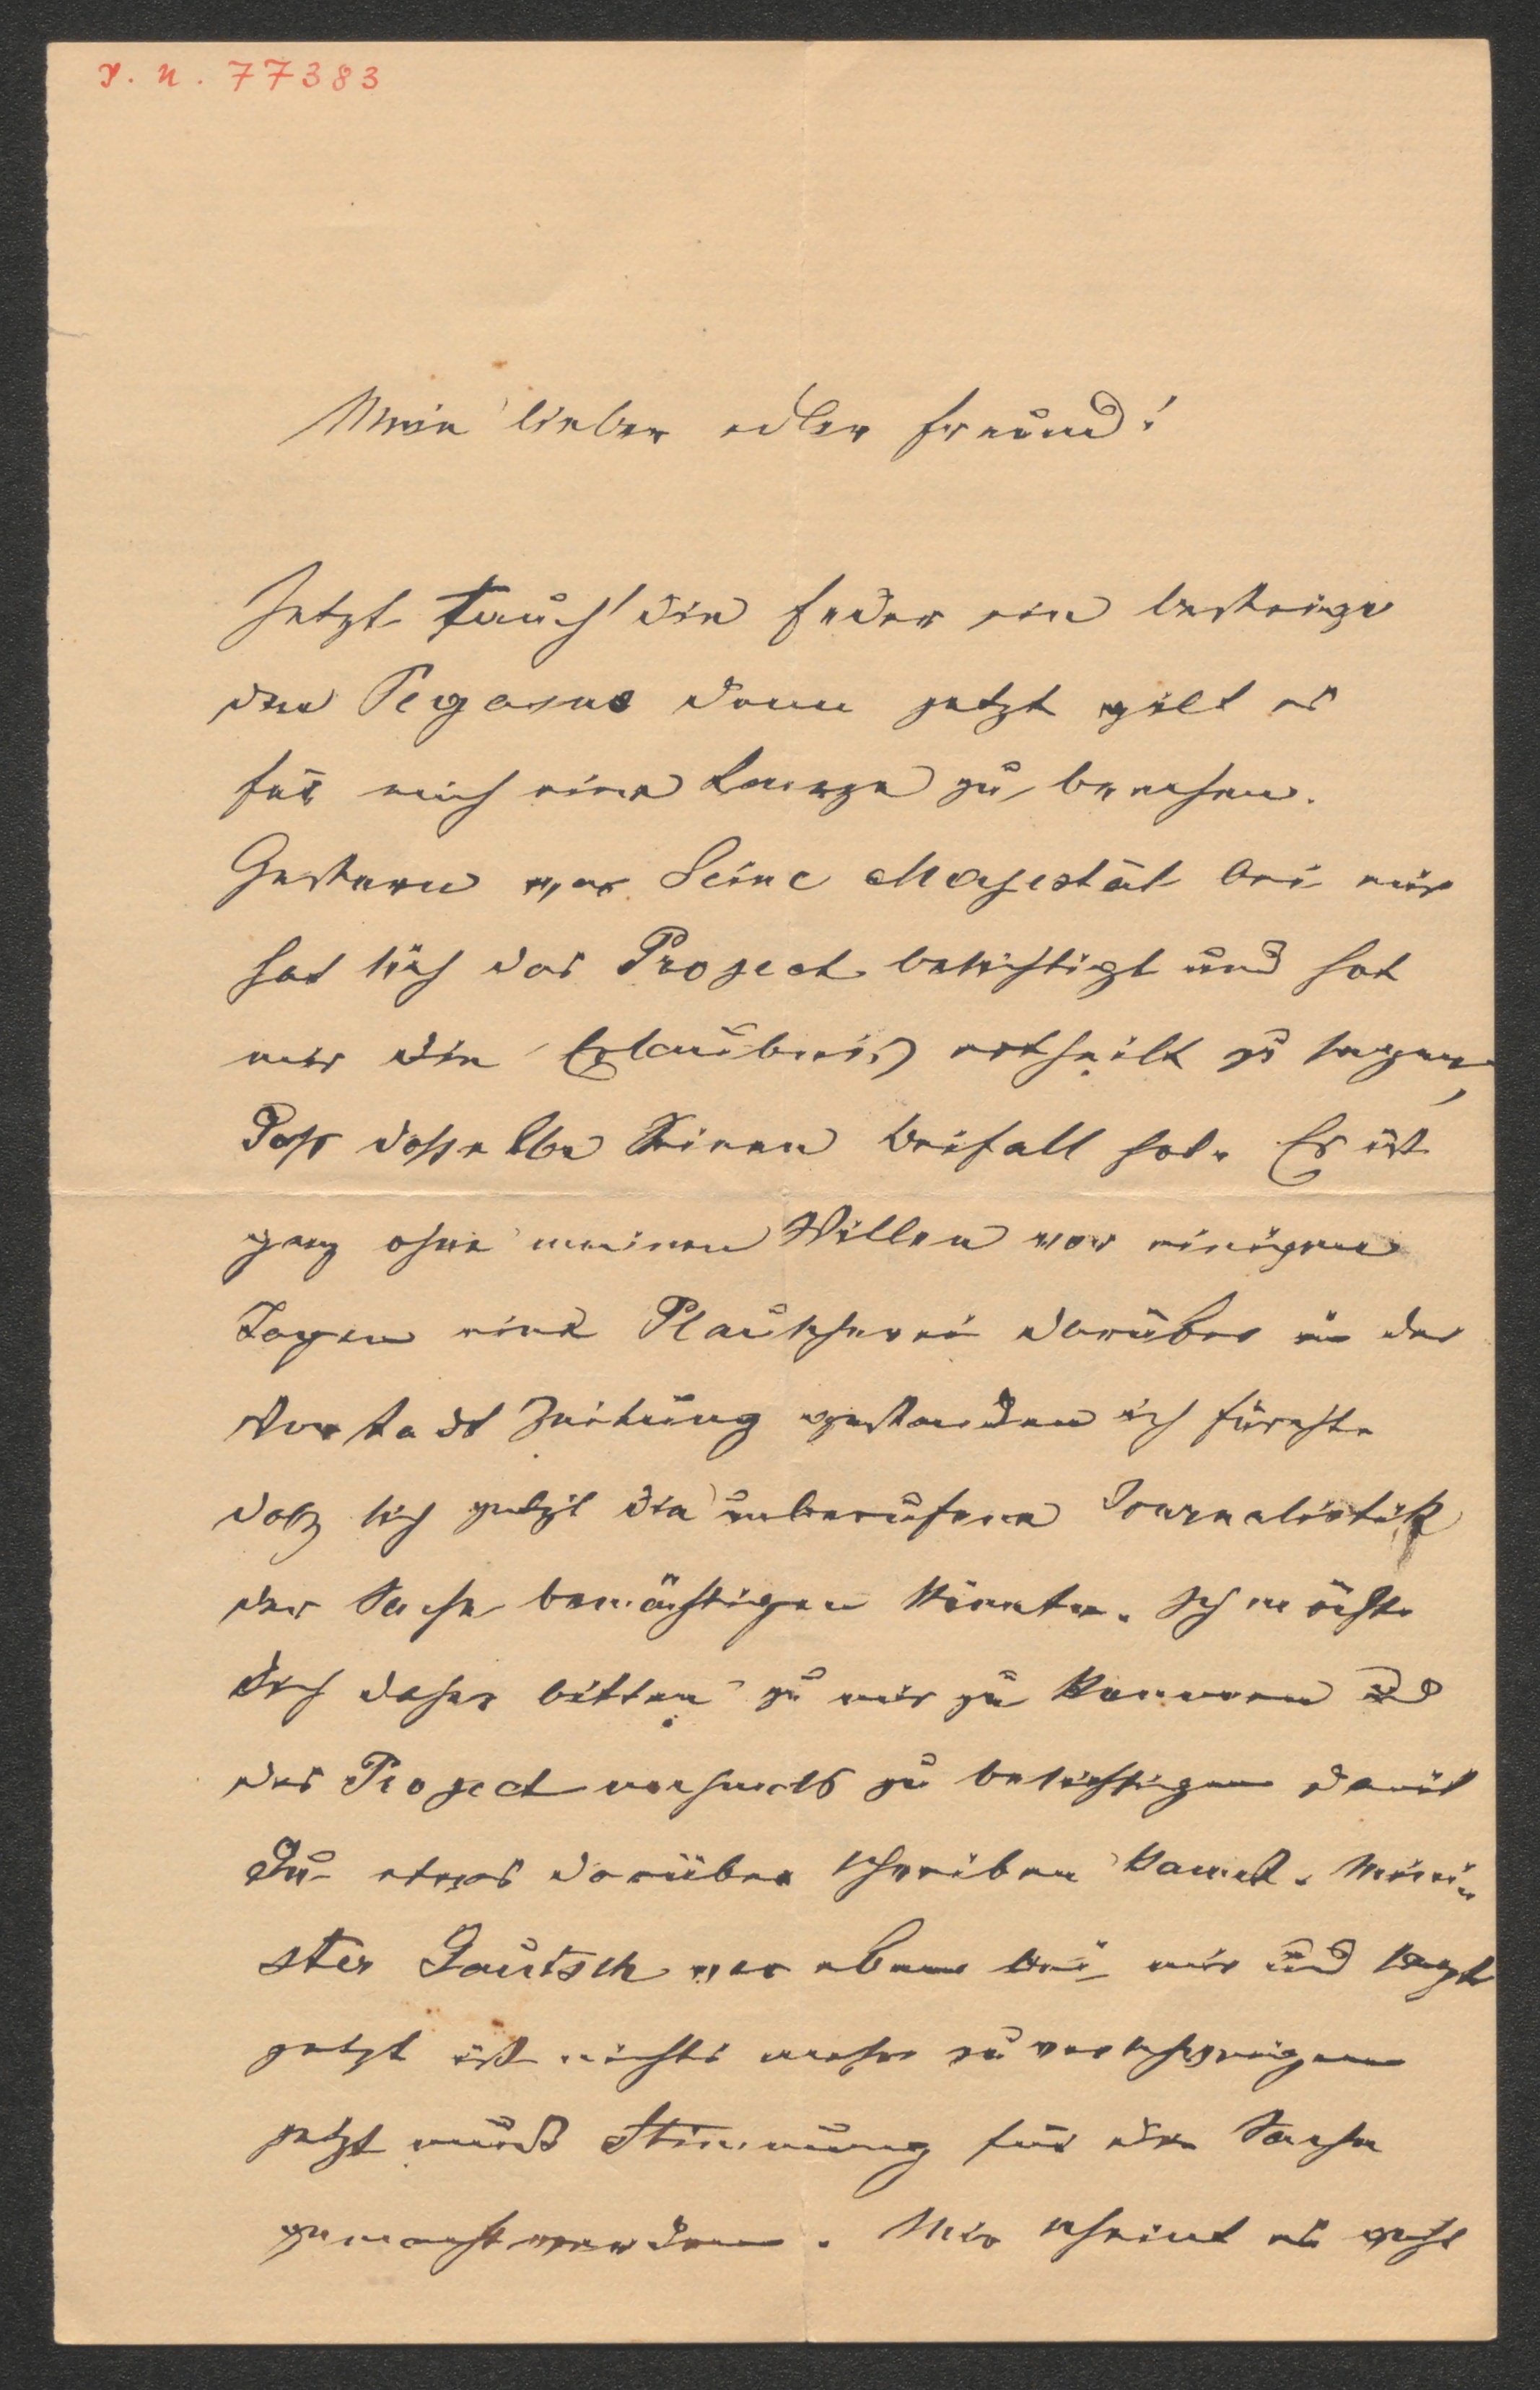 I. N. 77383
Mein lieber edler Freund!
Jetzt tauch' die Feder ein besteige
den Pegasus denn jetzt gilt es
für mich eine Lanze zu brechen.
Gestern war Seine Majestät bei mir
hat sich das Project besichtigt und hat
mir die Erlaubnis ertheilt zu sagen,
Dass dasselbe Seinen Beifall hat. Es ist
ganz ohne meinen Willen vor einigen
Tagen eine Plauscherei darüber in der
Vorstadt Zeitung gestanden ich fürchte
dass sich jetzt die unberufene Journalistik
der Sache bemächtigen könnte. Ich möchte
Dich daher bitten zu mir zu kommen und
das Project nochmals zu besichtigen damit
Du etwas darüber schreiben kannst. Mini-
ster Gautsch war eben bei mir und sagt
jetzt ist nichts mehr zu verschweigen
jetzt muß Stimmung für die Sache
gemacht werden. Mir scheint es geht